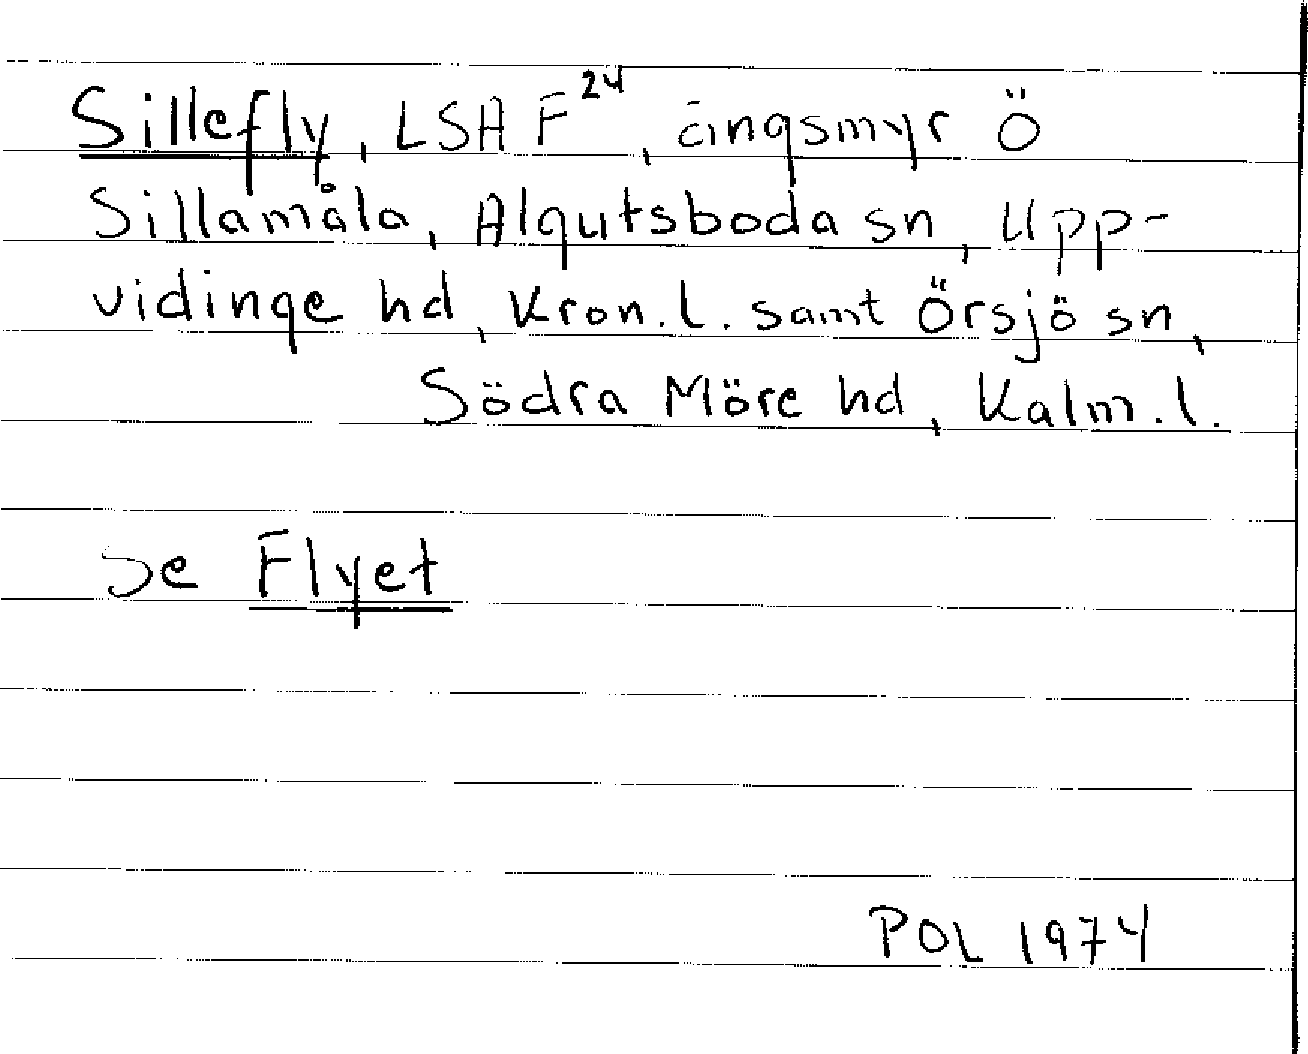 Sillefly, LSA F²⁴, ängsmyr Ö
Sillamåla, Algutsboda sn, Upp-
vidinge hd, Kron.l. samt Örsjö sn,
Södra Möre hd, Kalm.l.
Se Flyet
POL 1974